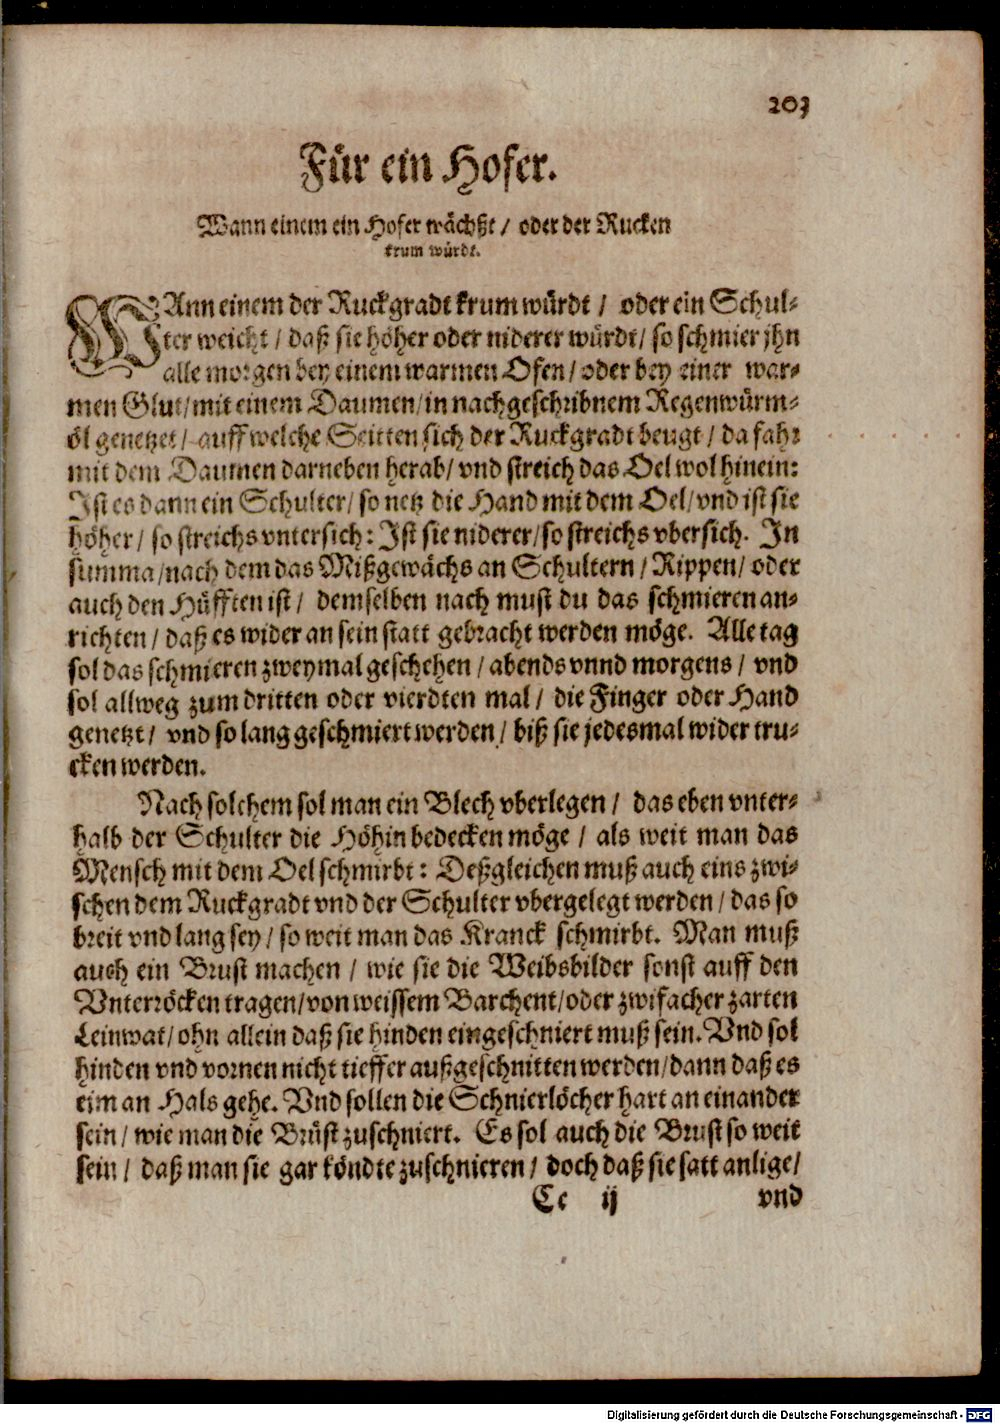 203
Für ein Hofer.
Wann einem ein Hofer wächßt / oder der Rucken
krum würdt.
WAnn einem der Ruckgradt krum würdt / oder ein Schul-
ter weicht / daß sie höher oder niderer würdt / so schmier jhn
alle morgen bey einem warmen Ofen / oder bey einer war-
men Glut / mit einem Daumen / in nachgeschribnem Regenwürm-
öl genetzet / auff welche Seitten sich der Ruckgradt beugt / da fahr
mit dem Daumen darneben herab / vnd streich das Oel wol hinein:
Ist es dann ein Schulter / so netz die Hand mit dem Oel / vnd ist sie
höher / so streichs vntersich: Ist sie niderer / so streichs vbersich. In
summa / nach dem das Mißgewächs an Schultern / Rippen / oder
auch den Hüfften ist / demselben nach must du das schmieren an-
richten / daß es wider an sein statt gebracht werden möge. Alle tag
sol das schmieren zweymal geschehen / abends vnnd morgens / vnd
sol allweg zum dritten oder vierdten mal / die Finger oder Hand
genetzt / vnd so lang geschmiert werden / biß sie jedesmal wider tru-
cken werden.
Nach solchem sol man ein Blech vberlegen / das eben vnter-
halb der Schulter die Höhin bedecken möge / als weit man das
Mensch mit dem Oel schmirbt: Deßgleichen muß auch eins zwi-
schen dem Ruckgradt vnd der Schulter vbergelegt werden / das so
breit vnd lang sey / so weit man das Kranck schmirbt. Man muß
auch ein Brust machen / wie sie die Weibsbilder sonst auff den
Vnterröcken tragen / von weissem Barchent / oder zwifacher zarten
Leinwat / ohn allein daß sie hinden eingeschniert muß sein. Vnd sol
hinden vnd vornen nicht tieffer außgeschnitten werden / dann daß es
eim an Hals gehe. Vnd sollen die Schnierlöcher hart an einander
sein / wie man die Brüst zuschniert. Es sol auch die Brust so weit
sein / daß man sie gar köndte zuschnieren / doch daß sie satt anlige /
Cc ij vnd
Digitalisierung gefördert durch die Deutsche Forschungsgemeinschaft - DFG